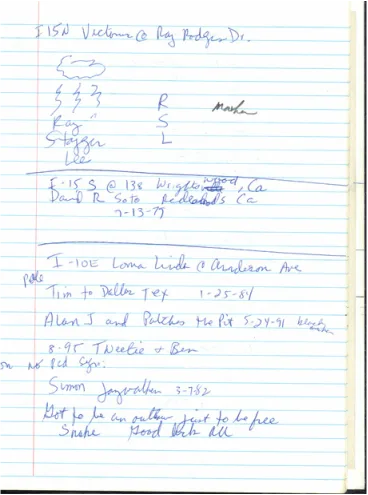 I 15N Victorville @ Roy Rodgers Dr.
R
Ray
S
Stagger
L
Lee
I-15 S @ 138 Wrightwood, Ca
David R Soto Redlands Ca
7-13-79
I-10E Loma Linda @ Anderson Ave
pole
Tim to Dallas Tex 1-25-84
Alan J and Patches the Pit 5-24-91 black
8-95 Tweetie + Ben
on no Ped Sign.
Simon Jaywalken 3-7-82
Got to be an outlaw just to be free
Snake Good luck All